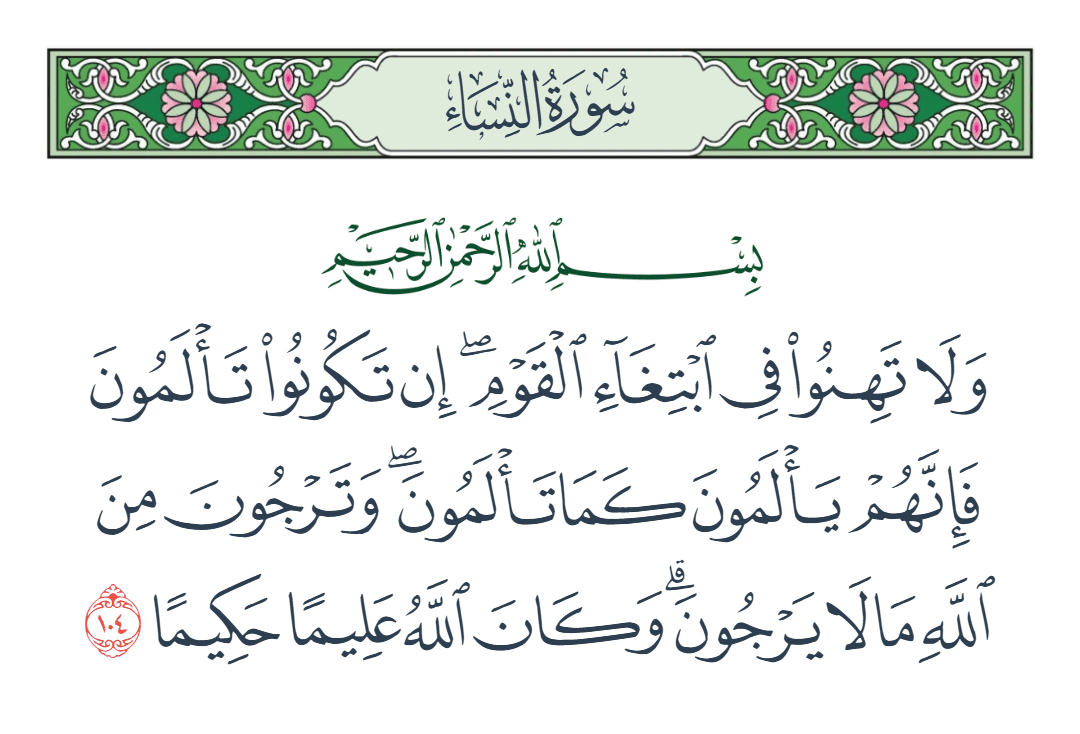 سُورَةُ النِّسَاءِ
بِسْمِ ٱللَّهِ ٱلرَّحْمَٰنِ ٱلرَّحِيمِ
وَلَا تَهِنُوا۟ فِى ٱبْتِغَآءِ ٱلْقَوْمِ ۖ إِن تَكُونُوا۟ تَأْلَمُونَ
فَإِنَّهُمْ يَأْلَمُونَ كَمَا تَأْلَمُونَ ۖ وَتَرْجُونَ مِنَ
ٱللَّهِ مَا لَا يَرْجُونَ ۗ وَكَانَ ٱللَّهُ عَلِيمًا حَكِيمًا ١٠٤